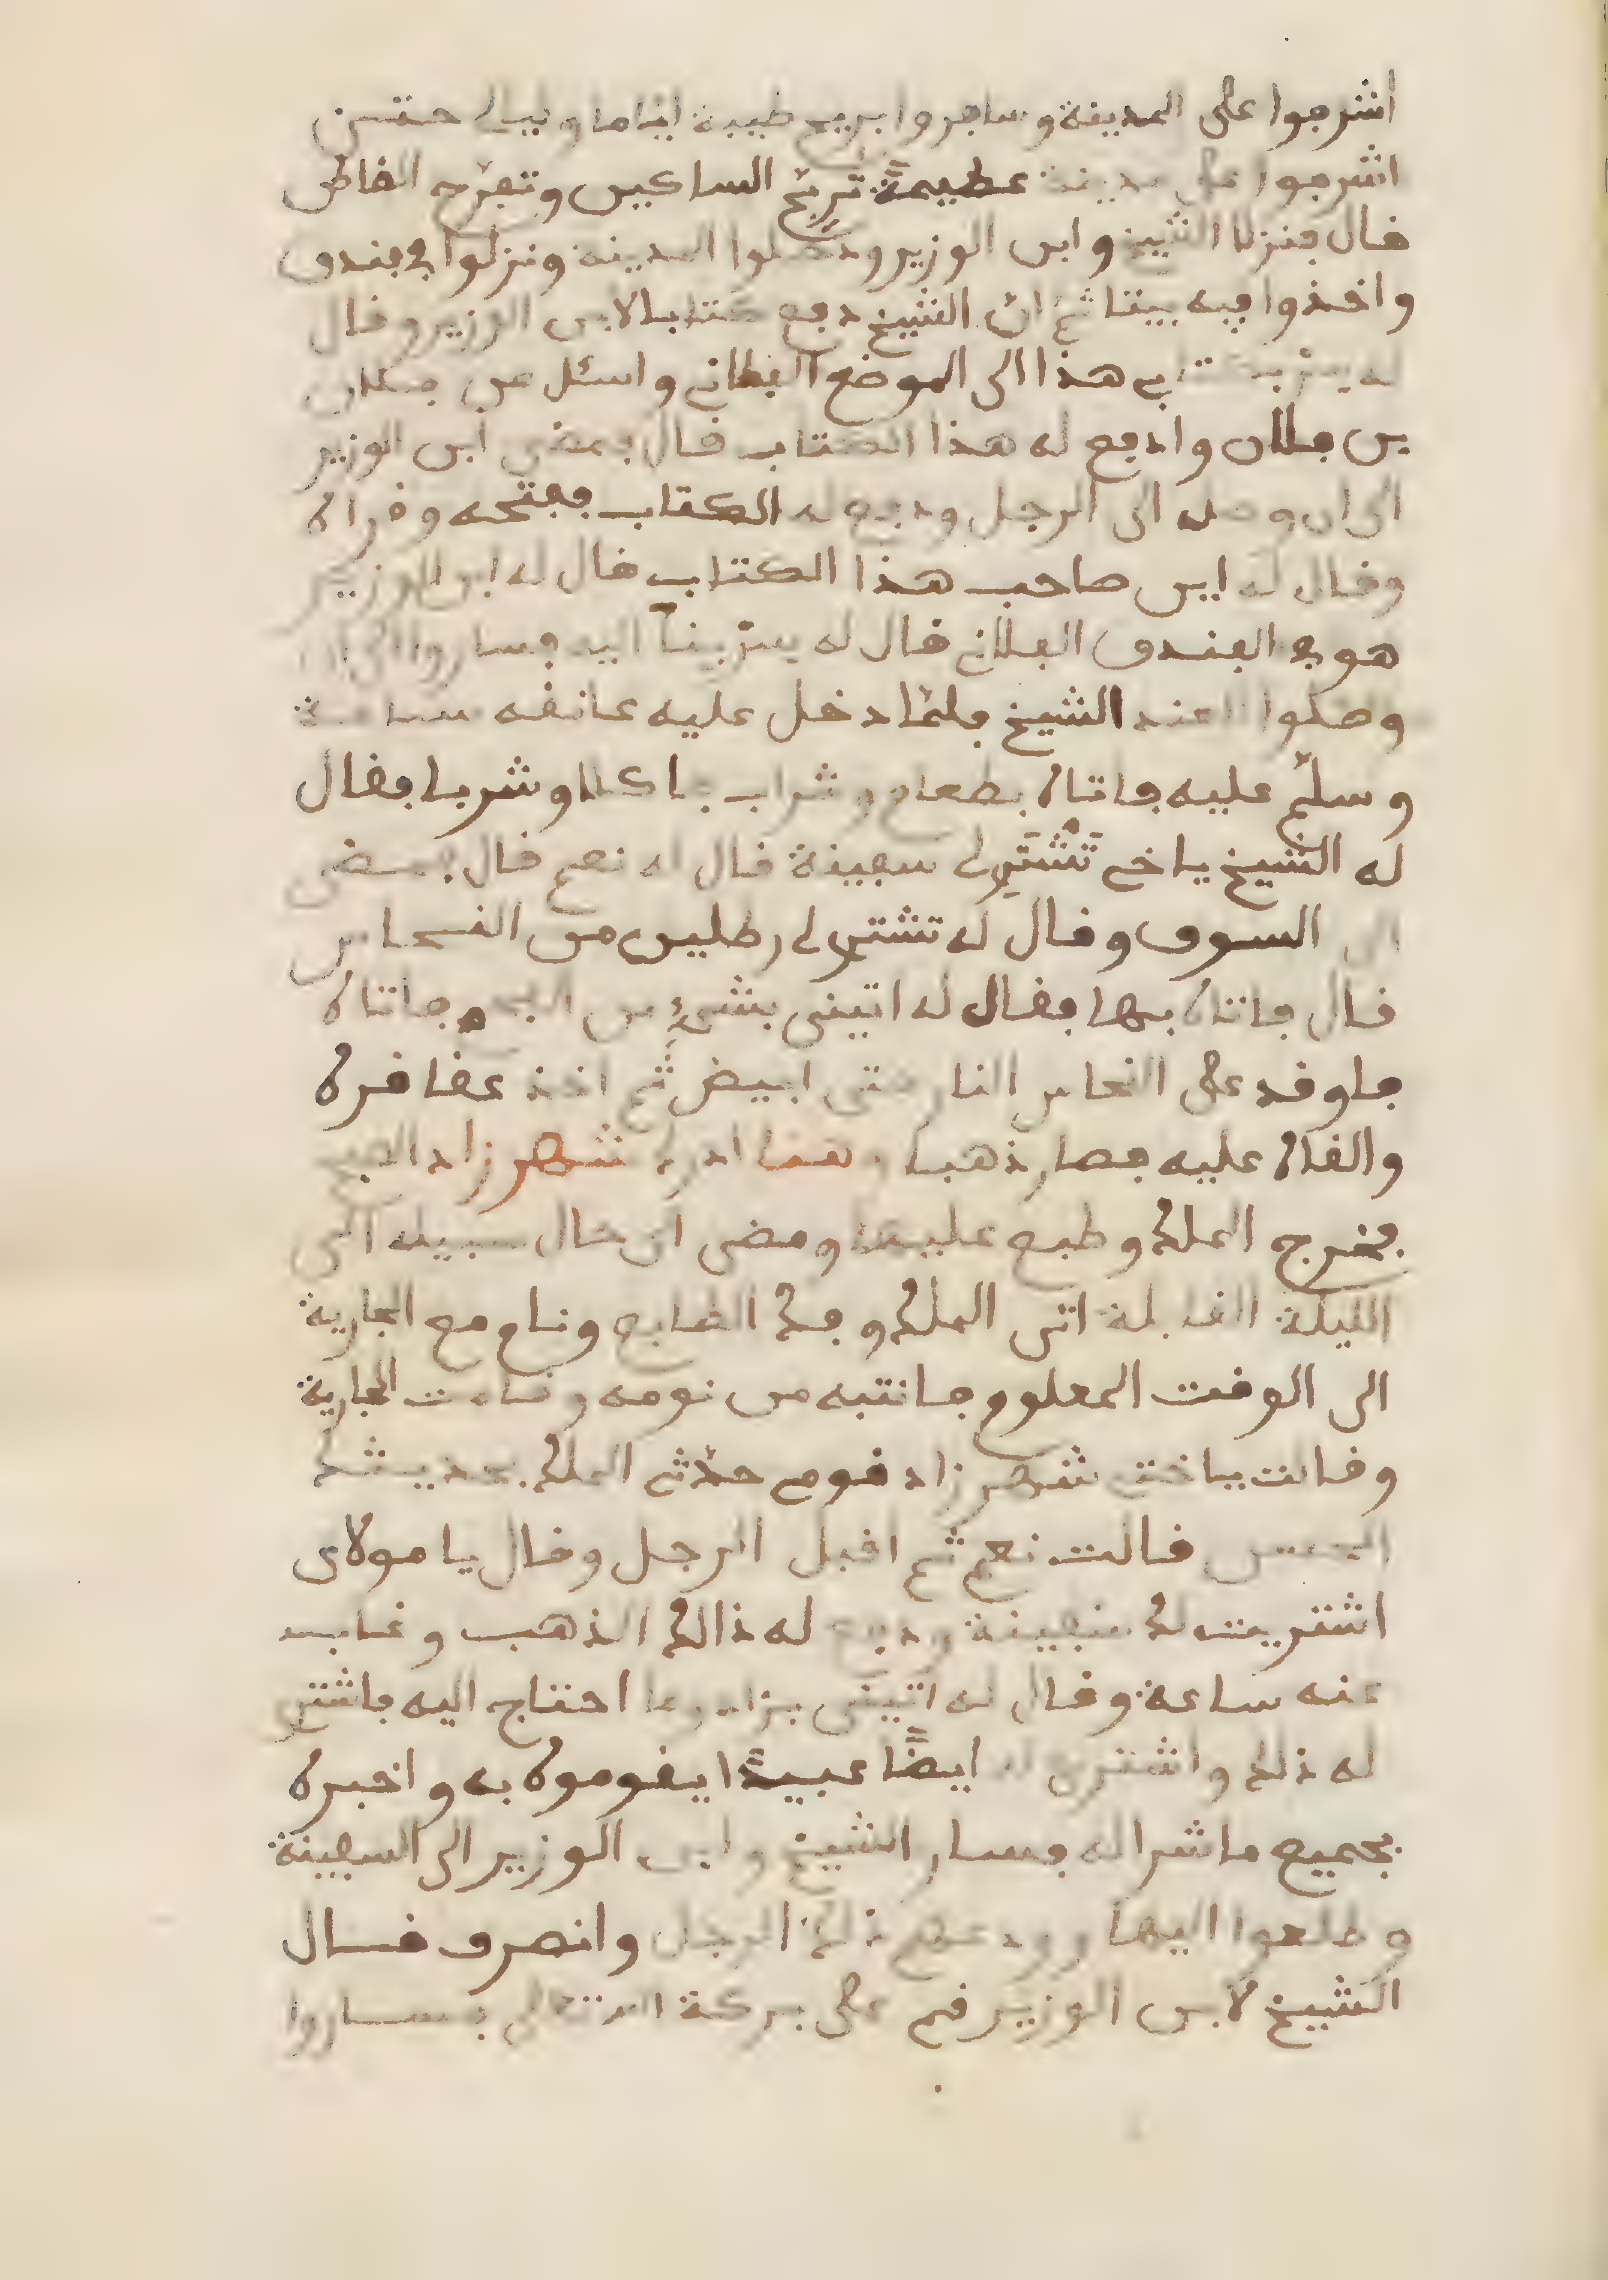 اشرفوا على المدينة وسافروا بريح طيبة اياما وليالي حتى
اشرفوا على مدينة عظيمة تربّح الساكين وتفرّج القاطن
قال فنزلا الشيخ وابن الوزير ودخلوا المدينة ونزلوا في فندق
واخذوا فيه بيتا ثم ان الشيخ دفع كتابا لابن الوزير وقال
له سر بكتابي هذا الى الموضع الفلاني واسئل عن فلان
بن فلان وادفع له هذا الكتاب قال فمضى ابن الوزير
الى ان وصل الى الرجل ودفع له الكتاب ففتحه وقراه
وقال له اين صاحب هذا الكتاب قال له ابن الوزير
هو في الفندق الفلاني قال له سر بنا اليه فساروا الى ان
وصلوا عند الشيخ فلمّا دخل عليه عانقه ساعة
وسلّم عليه فاتاه بطعام وشراب فاكلا وشربا فقال
له الشيخ ياخي تَشْتَرِلي سفينة قال له نعم قال فمضى
الى السوق وقال له تشتري لي رطلين من النحاس
قال فاتاه بها فقال له اتيني بشيء من الفحم فاتاه
فاوقد على النحاس النار حتى ابيض ثم اخذ عقاقره
والقاه عليه فصار ذهبا وهنا ادرك شهرزاد الصبح
فخرج الملك وطبع عليها ومضى الى حال سبيله الى
الليلة القابلة اتى الملك وفك الطابع ونام مع الجارية
الى الوقت المعلوم فانتبه من نومه وقامت الجارية
وقالت ياختي شهرزاد قومي حدّثي الملك بحديثك
الحسن قالت نعم ثم اقبل الرجل وقال يا مولاى
اشتريت لك سفينة ودفع له ذالك الذهب وغاب
عنه ساعة وقال له اتيني بزاد وما احتاج اليه فاشترى
له ذلك واشترى له ايضًا عبيدًا يقوموه به واخبره
بجميع ماشرا له فسار الشيخ وابن الوزير الى السفينة
وطلعوا اليها وودعهم ذلك الرجل وانصرف قال
الشيخ لابن الوزير قم على بركة الله تعالى فساروا